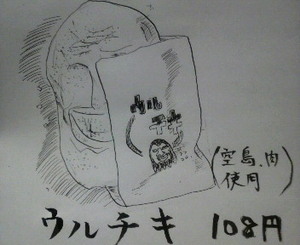 ウル
チキ
(空鳥、肉
使用)
ウルチキ 108円